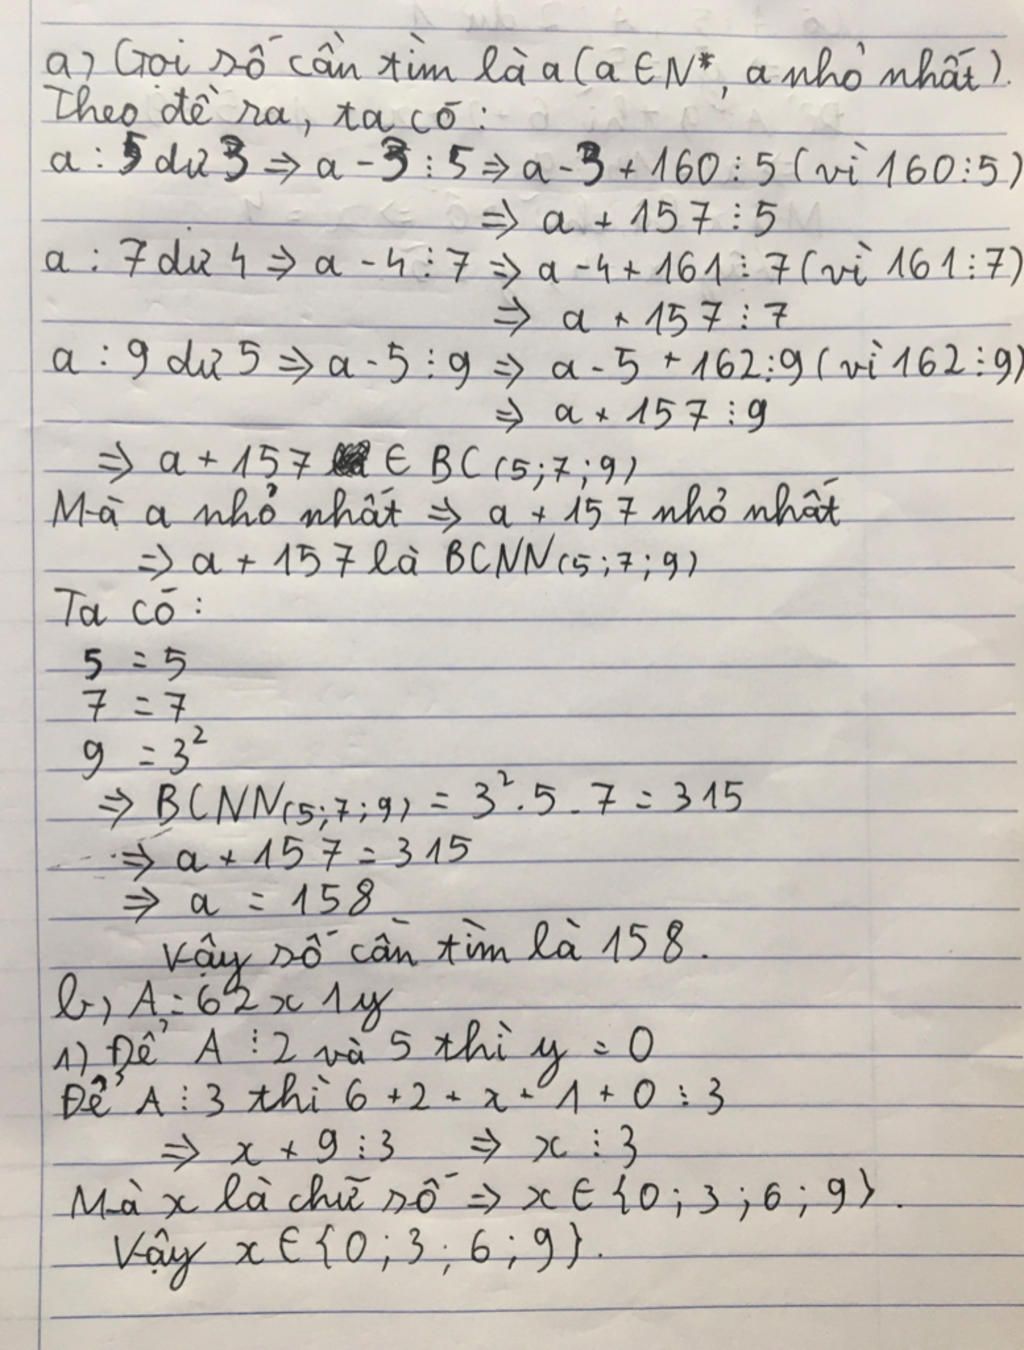 a) Gọi số cần tìm là a (a ∈ N*, a nhỏ nhất).
Theo đề ra, ta có:
a : 5 dư 3 ⇒ a - 3 ⋮ 5 ⇒ a - 3 + 160 ⋮ 5 (vì 160 ⋮ 5)
⇒ a + 157 ⋮ 5
a : 7 dư 4 ⇒ a - 4 ⋮ 7 ⇒ a - 4 + 161 ⋮ 7 (vì 161 ⋮ 7)
⇒ a + 157 ⋮ 7
a : 9 dư 5 ⇒ a - 5 ⋮ 9 ⇒ a - 5 + 162 ⋮ 9 (vì 162 ⋮ 9)
⇒ a + 157 ⋮ 9
⇒ a + 157 ∈ BC (5; 7; 9)
Mà a nhỏ nhất ⇒ a + 157 nhỏ nhất
⇒ a + 157 là BCNN (5; 7; 9)
Ta có:
5 = 5
7 = 7
9 = 3²
⇒ BCNN (5; 7; 9) = 3² . 5 . 7 = 315
⇒ a + 157 = 315
⇒ a = 158
Vậy số cần tìm là 158.
b) A = 62x1y
1) Để A ⋮ 2 và 5 thì y = 0
Để A ⋮ 3 thì 6 + 2 + x + 1 + 0 ⋮ 3
⇒ x + 9 ⋮ 3 ⇒ x ⋮ 3
Mà x là chữ số ⇒ x ∈ {0; 3; 6; 9}.
Vậy x ∈ {0; 3; 6; 9}.